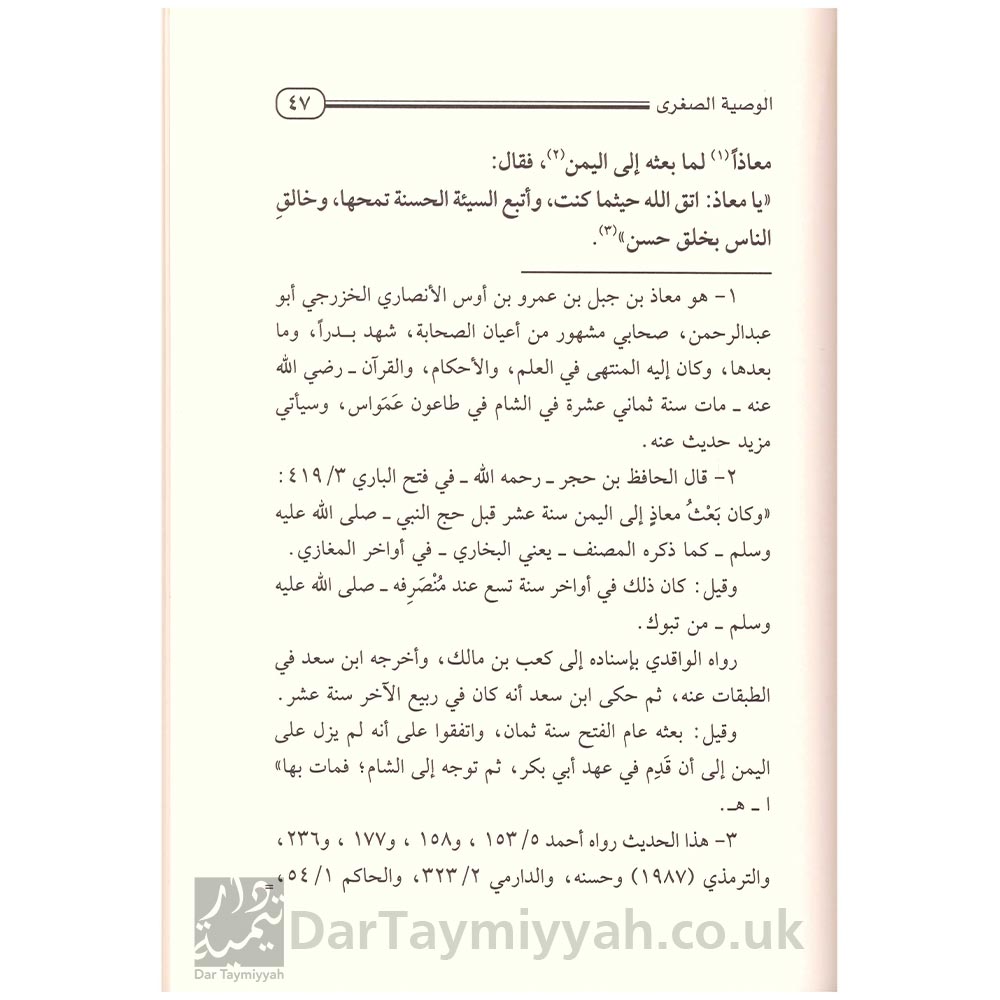 الوصية الصغرى ٤٧
معاذاً(١) لما بعثه إلى اليمن(٢)، فقال:
«يا معاذ: اتق الله حيثما كنت، وأتبع السيئة الحسنة تمحها، وخالقِ
الناس بخلق حسن»(٣).
١- هو معاذ بن جبل بن عمرو بن أوس الأنصاري الخزرجي أبو
عبدالرحمن، صحابي مشهور من أعيان الصحابة، شهد بــدراً، وما
بعدها، وكان إليه المنتهى في العلم، والأحكام، والقرآن ـ رضي الله
عنه ـ مات سنة ثماني عشرة في الشام في طاعون عَمَواس، وسيأتي
مزيد حديث عنه.
٢- قال الحافظ بن حجر ـ رحمه الله ـ في فتح الباري ٣/ ٤١٩:
«وكان بَعْثُ معاذٍ إلى اليمن سنة عشر قبل حج النبي ـ صلى الله عليه
وسلم ـ كما ذكره المصنف ـ يعني البخاري ـ في أواخر المغازي.
وقيل: كان ذلك في أواخر سنة تسع عند مُنْصَرِفه ـ صلى الله عليه
وسلم ـ من تبوك.
رواه الواقدي بإسناده إلى كعب بن مالك، وأخرجه ابن سعد في
الطبقات عنه، ثم حكى ابن سعد أنه كان في ربيع الآخر سنة عشر.
وقيل: بعثه عام الفتح سنة ثمان، واتفقوا على أنه لم يزل على
اليمن إلى أن قَدِم في عهد أبي بكر، ثم توجه إلى الشام؛ فمات بها»
ا ـ هـ.
٣- هذا الحديث رواه أحمد ٥/ ١٥٣، و١٥٨، و١٧٧، و٢٣٦،
والترمذي (١٩٨٧) وحسنه، والدارمي ٢/ ٣٢٣، والحاكم ١/ ٥٤، =
دار تيمية
Dar Taymiyyah
DarTaymiyyah.co.uk